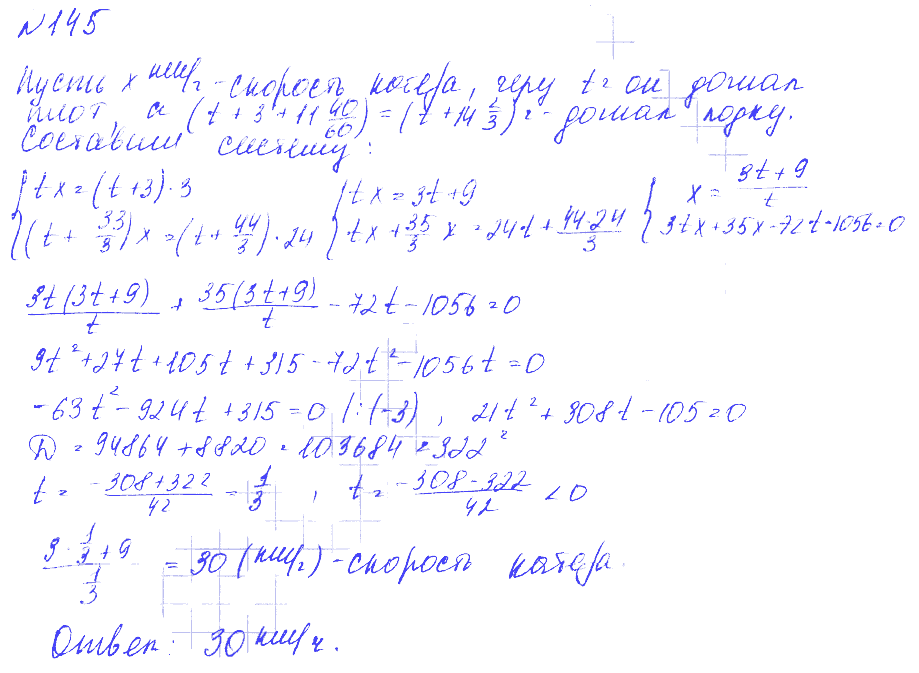 №145
Пусть x км/ч - скорость катера, через t ч он догнал
плот, а (t + 3 + 11 40/60) = (t + 14 2/3) ч - догнал лодку.
Составим систему:
{ tx = (t + 3)·3 { tx = 3t + 9 { x = (3t + 9)/t
{ (t + 33/3)x = (t + 44/3)·24 { tx + 35/3 x = 24t + (44·24)/3 { 3tx + 35x - 72t - 1056 = 0
3t(3t+9)/t + 35(3t+9)/t - 72t - 1056 = 0
9t² + 27t + 105t + 315 - 72t² - 1056t = 0
-63t² - 924t + 315 = 0 /:(-3) , 21t² + 308t - 105 = 0
D = 94864 + 8820 = 103684 = 322²
t = (-308+322)/42 = 1/3 , t = (-308-322)/42 < 0
(3·1/3 + 9)/(1/3) = 30 (км/ч) - скорость катера.
Ответ: 30 км/ч.